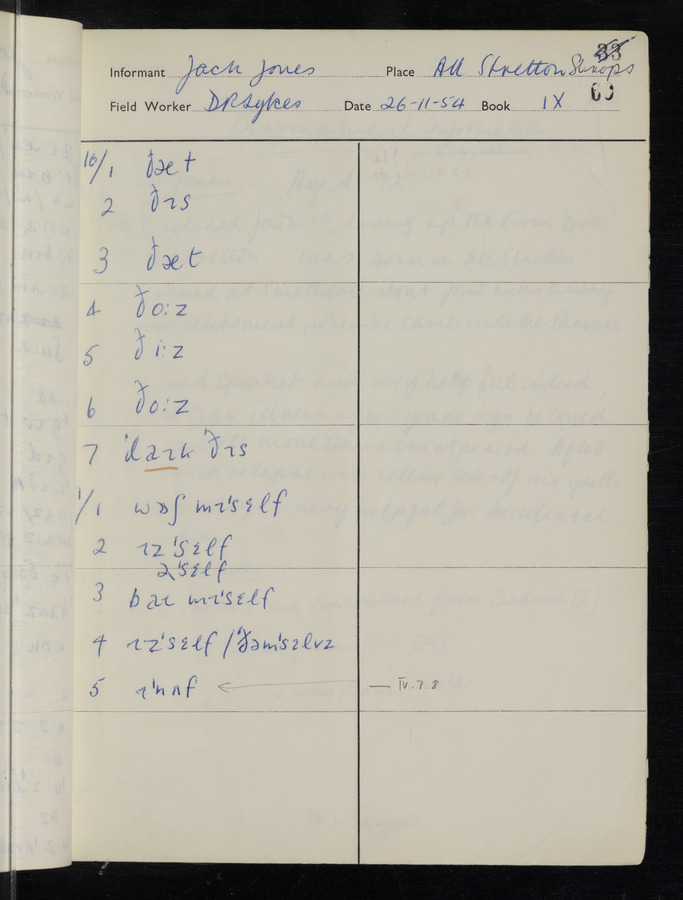 33
Informant Jack Jones Place All Stretton Shrops
Field Worker DRSykes Date 26-11-54 Book IX
10/1 ðæt
2 ðɪs
3 ðæt
4 ðo:z
5 ði:z
6 ðo:z
7 'laɪk 'ðɪs
1/1 wɒʃ mɪ'sɛlf
2 ɪz'sɛlf
ə'sɛlf
3 baɪ mɪ'sɛlf
4 ɪz'sɛlf / 'ðəm'sɛlvz
5 ɪ'nʌf ← — IV.7.8